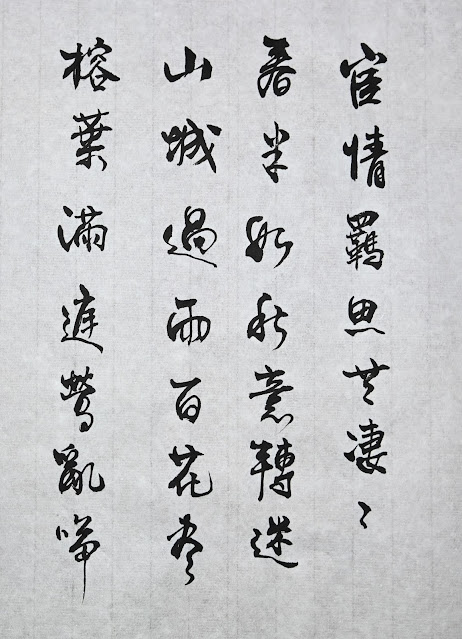 宦情羈思共凄〻
春半如秋意轉迷
山城過雨百花盡
榕葉滿庭鶯亂啼